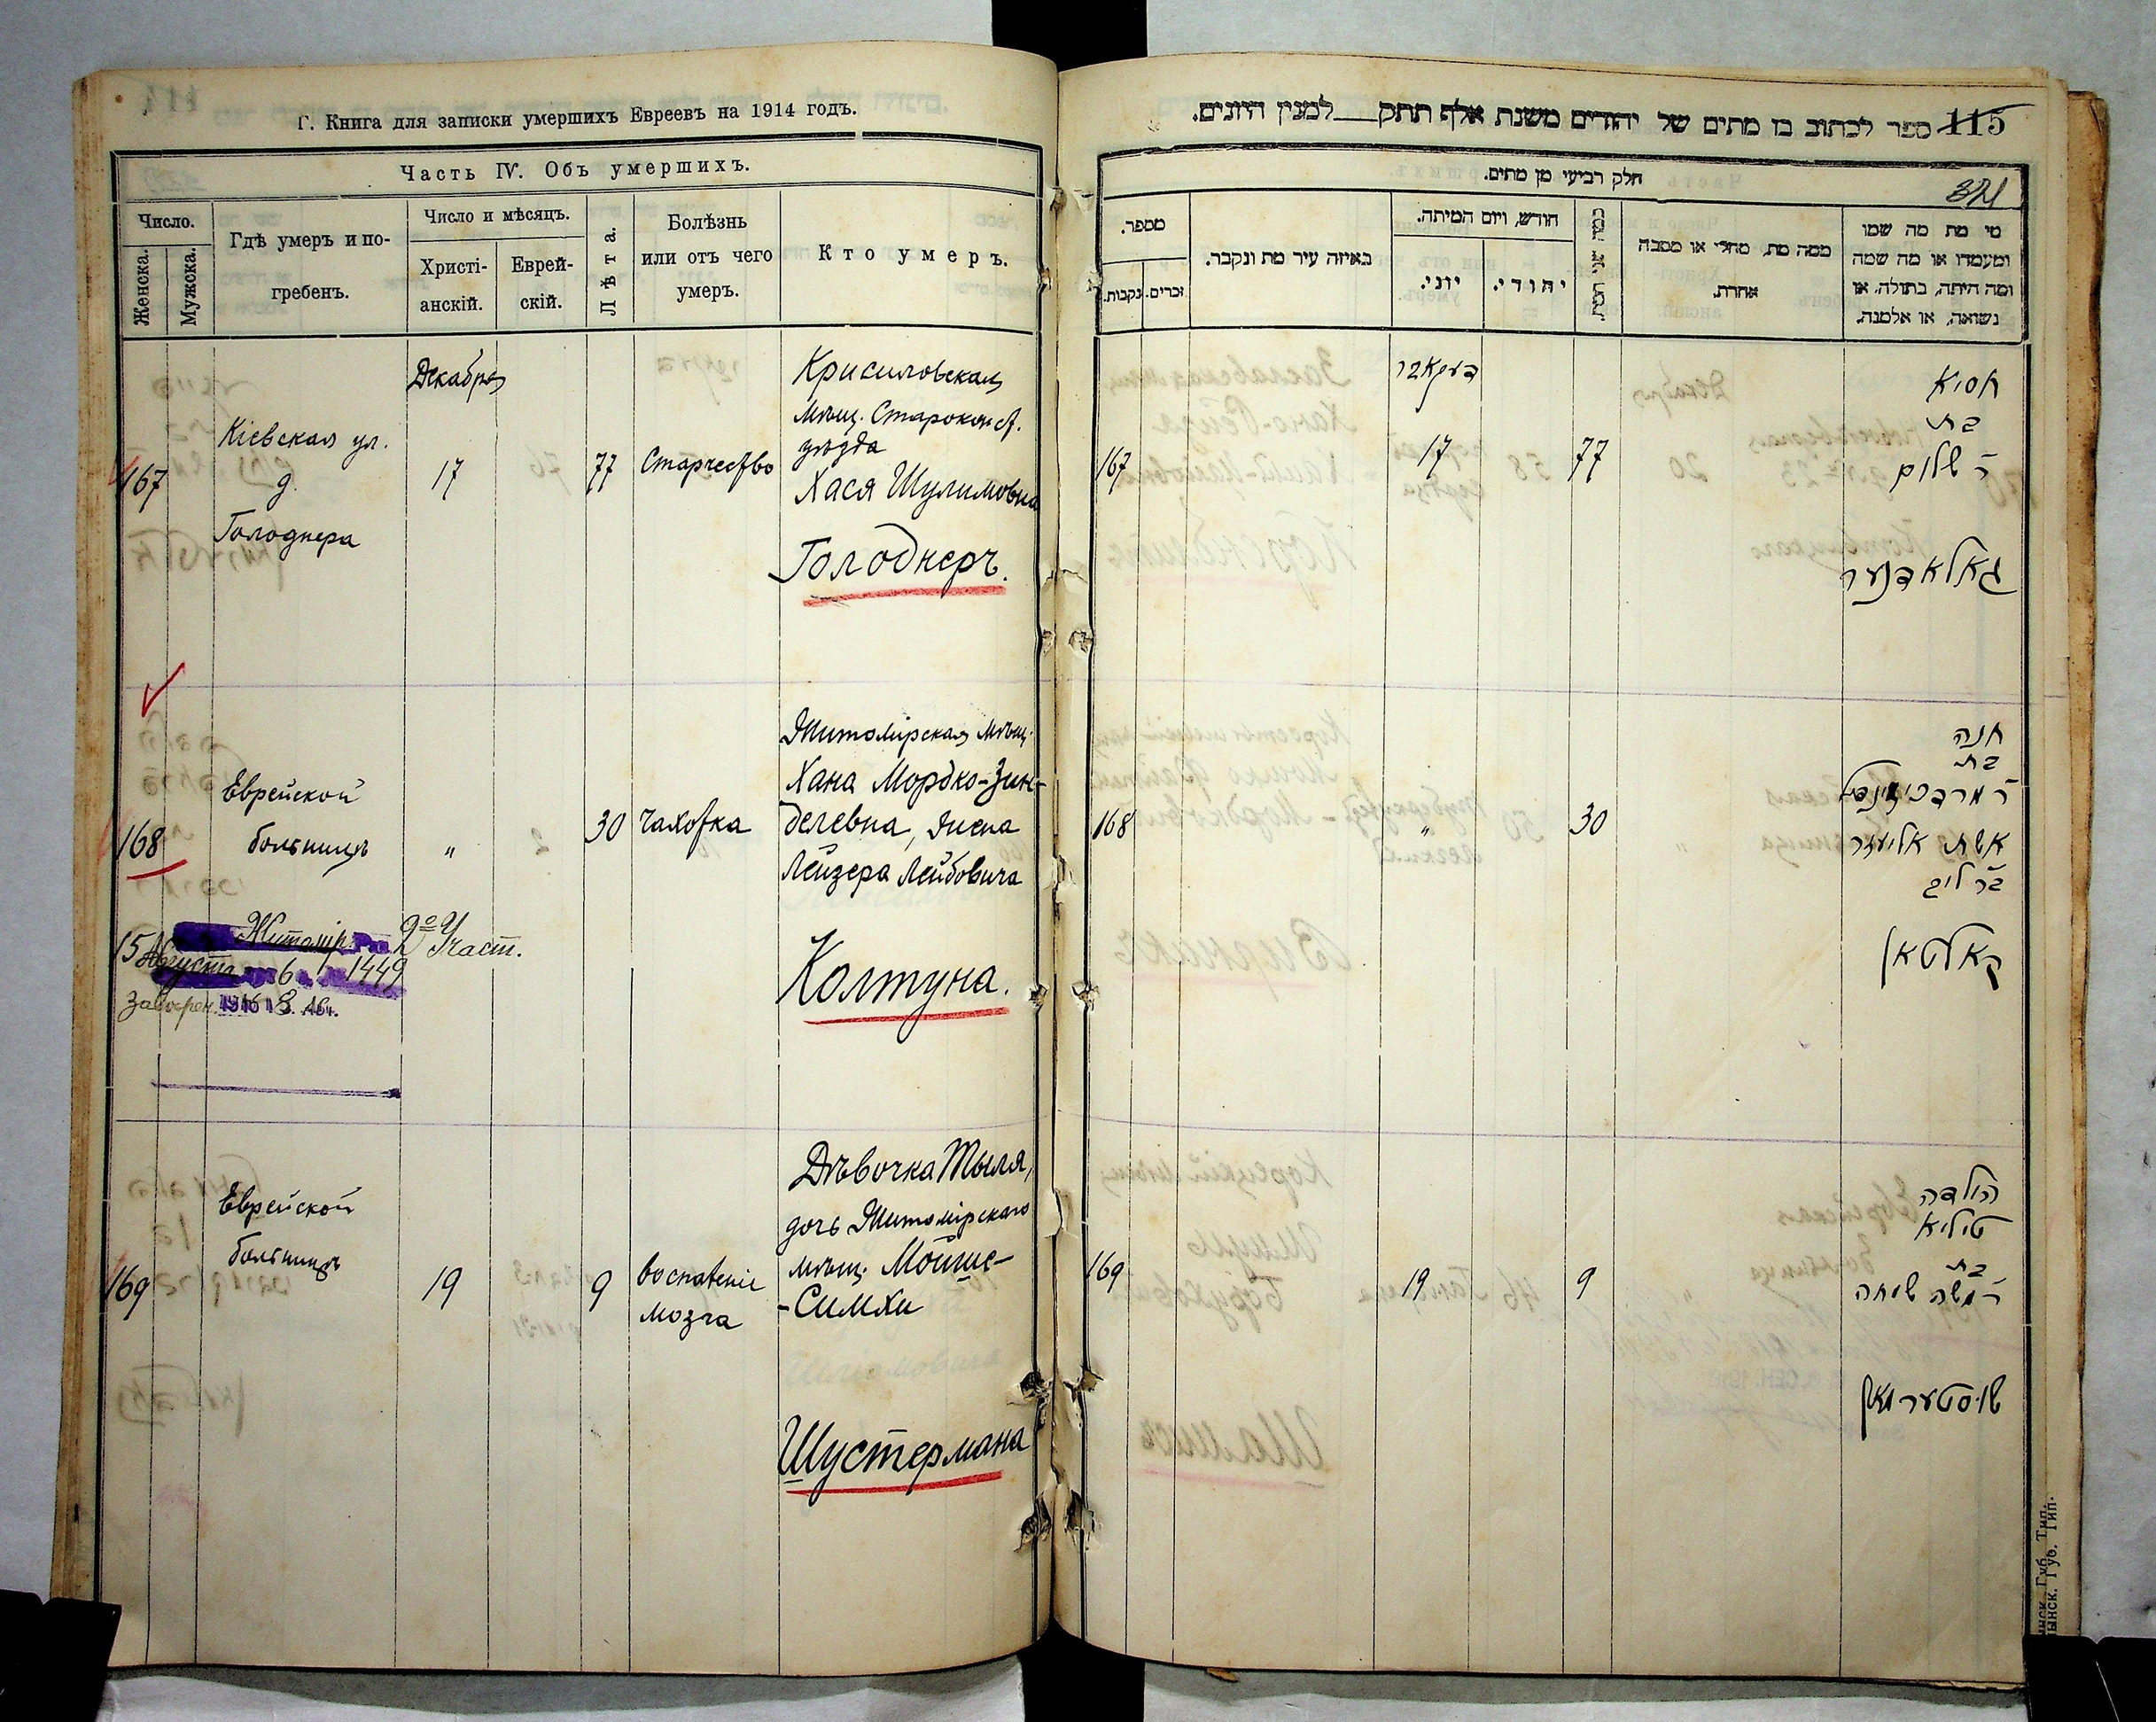 Г. Книга для записки умершихъ Евреевъ на 1914 годъ.
Часть IV. Объ умершихъ.
Число.
Женска.
Мужска.
Гдѣ умеръ и по-
гребенъ.
Число и мѣсяцъ.
Христі-
анскій.
Еврей-
скій.
Лѣта.
Болѣзнь
или отъ чего
умеръ.
Кто умеръ.
167
Кіевская ул.
д.
Голоднера
Декабря
17
77
Старчество
Крисиловская
мѣщ. Староконст.
уѣзда
Хася Шулимовна
Голоднеръ.
168
Еврейской
больницѣ
"
30
Чахотка
Житомірская мѣщ.
Хана Мордко-Зин-
делевна, жена
Лейзера Лейбовича
Колтуна.
15 Августа 6 1449
2º Участ.
169
Еврейской
больницѣ
19
9
воспаленіе
мозга
Дѣвочка Тыля,
дочь Житомірскаго
мѣщ. Мойше-
-Симхи
Шустермана
115
ספר לכתוב בו מתים של יהודים משנת אלף תתק למנין היונים.
חלק רביעי מן מתים.
321
מספר.
נקבות.
זכרים.
באיזה עיר מת ונקבר.
חודש, ויום המיתה.
יוני.
יהודי.
ממה מת, מחלי או מסבה
אחרת.
מי מת מה שמו
ומעמדו או מה שמה
ומה היתה, בתולה, או
נשואה, או אלמנה.
167
דעקאבר
17
77
חסיא
בת
ר' שלום
גאלאדנער
168
"
30
חנה
בת
ר' מרדכי זינדל
אשת אליעזר
בר' ליב
קאלטאן
169
19
9
הילדה
טיליא
בת
ר' משה שמחה
שוסטערמאן